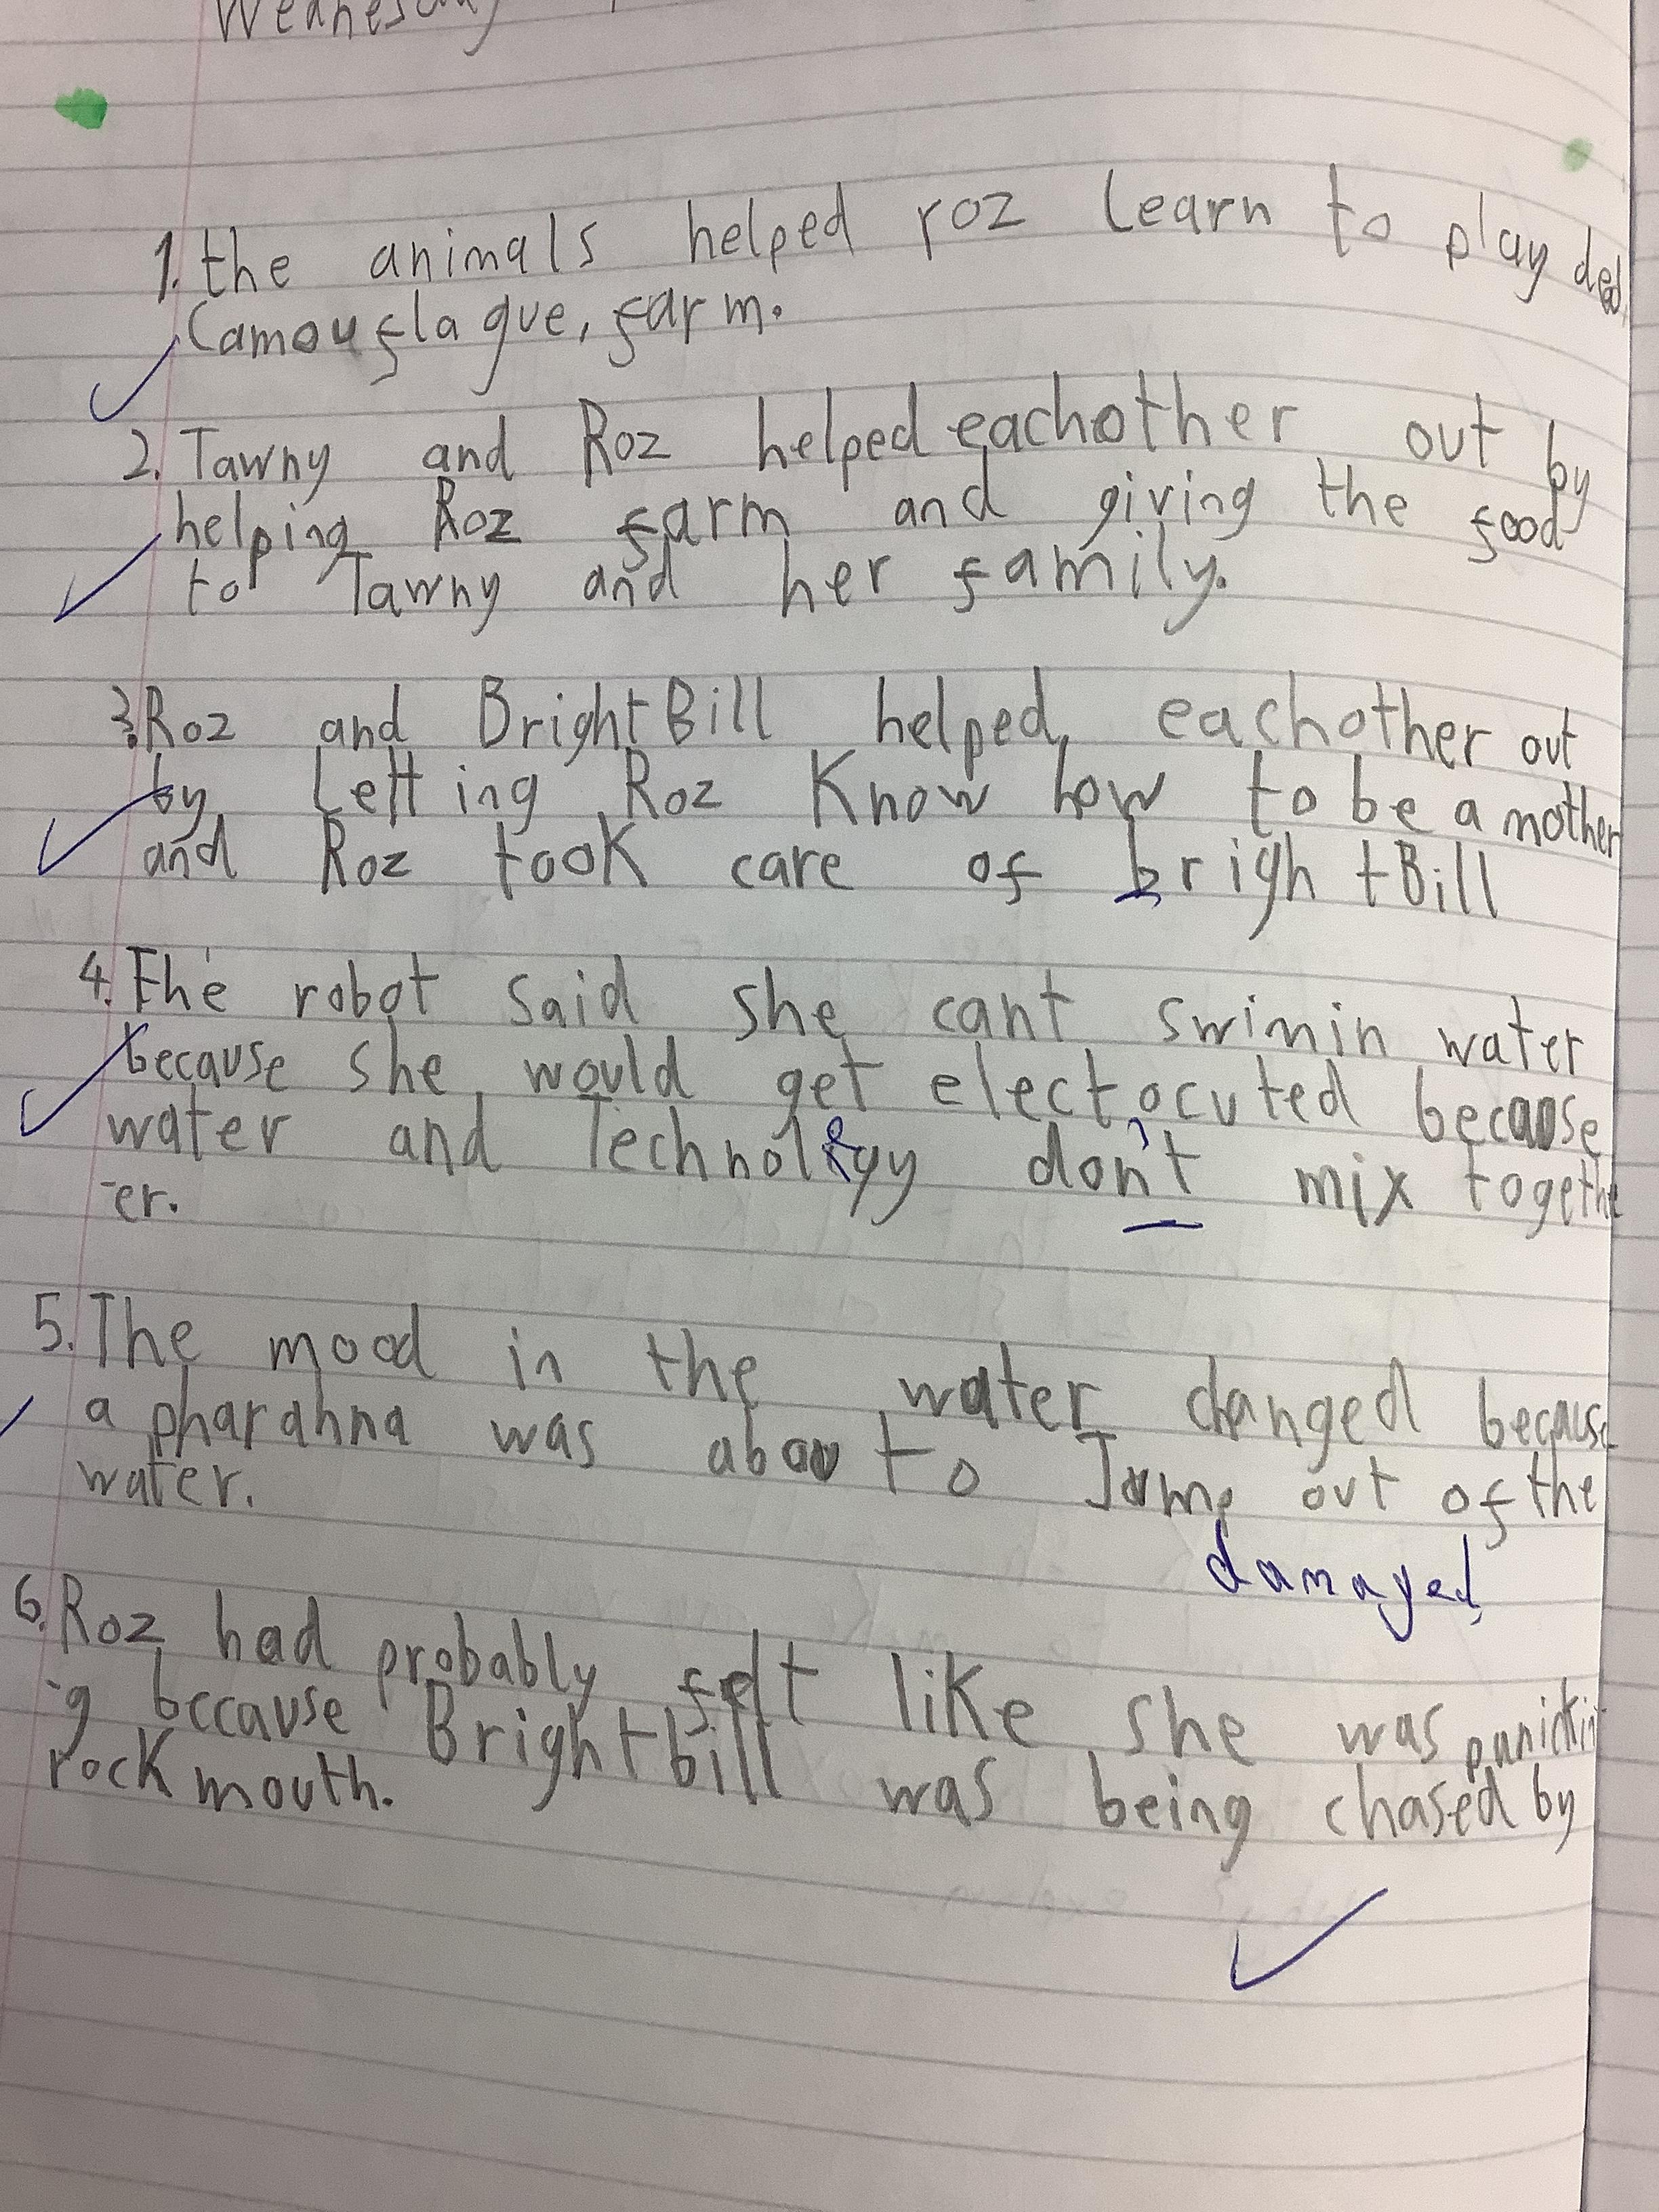 Wednesday
1. the animals helped roz learn to play ded,
Camouflague, farm.
2. Tawny and Roz helped eachother out by
helping Roz farm and giving the food
to Tawny and her family.
3. Roz and BrightBill helped eachother out
by letting Roz Know how to be a mother
and Roz took care of brightBill
4. The robot said she cant swimin water
because she would get electocuted because
water and Technology don't mix togethe
-er.
5. The mood in the water changed because
a pharahna was abou to Jump out of the
water.
damaged
6. Roz had probably felt like she was panickin
-g because Brightbill was being chased by
rock mouth.